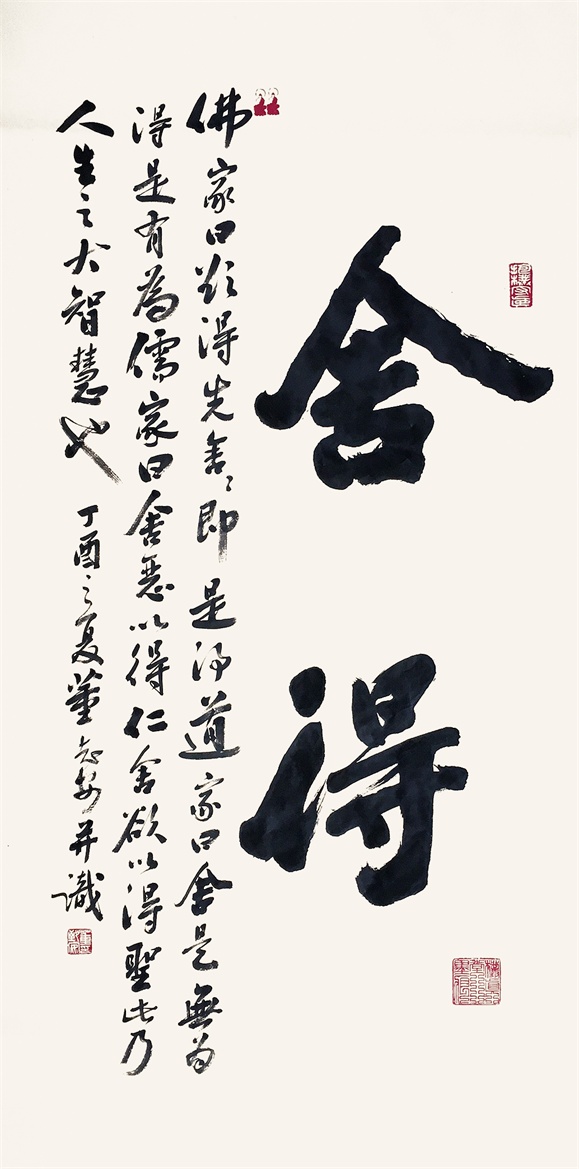 舍得
佛家曰欲得先舍舍即是得道家曰舍是無为
得是有為儒家曰舍惡以得仁舍欲以得聖此乃
人生之大智慧也 丁酉之夏董 并識